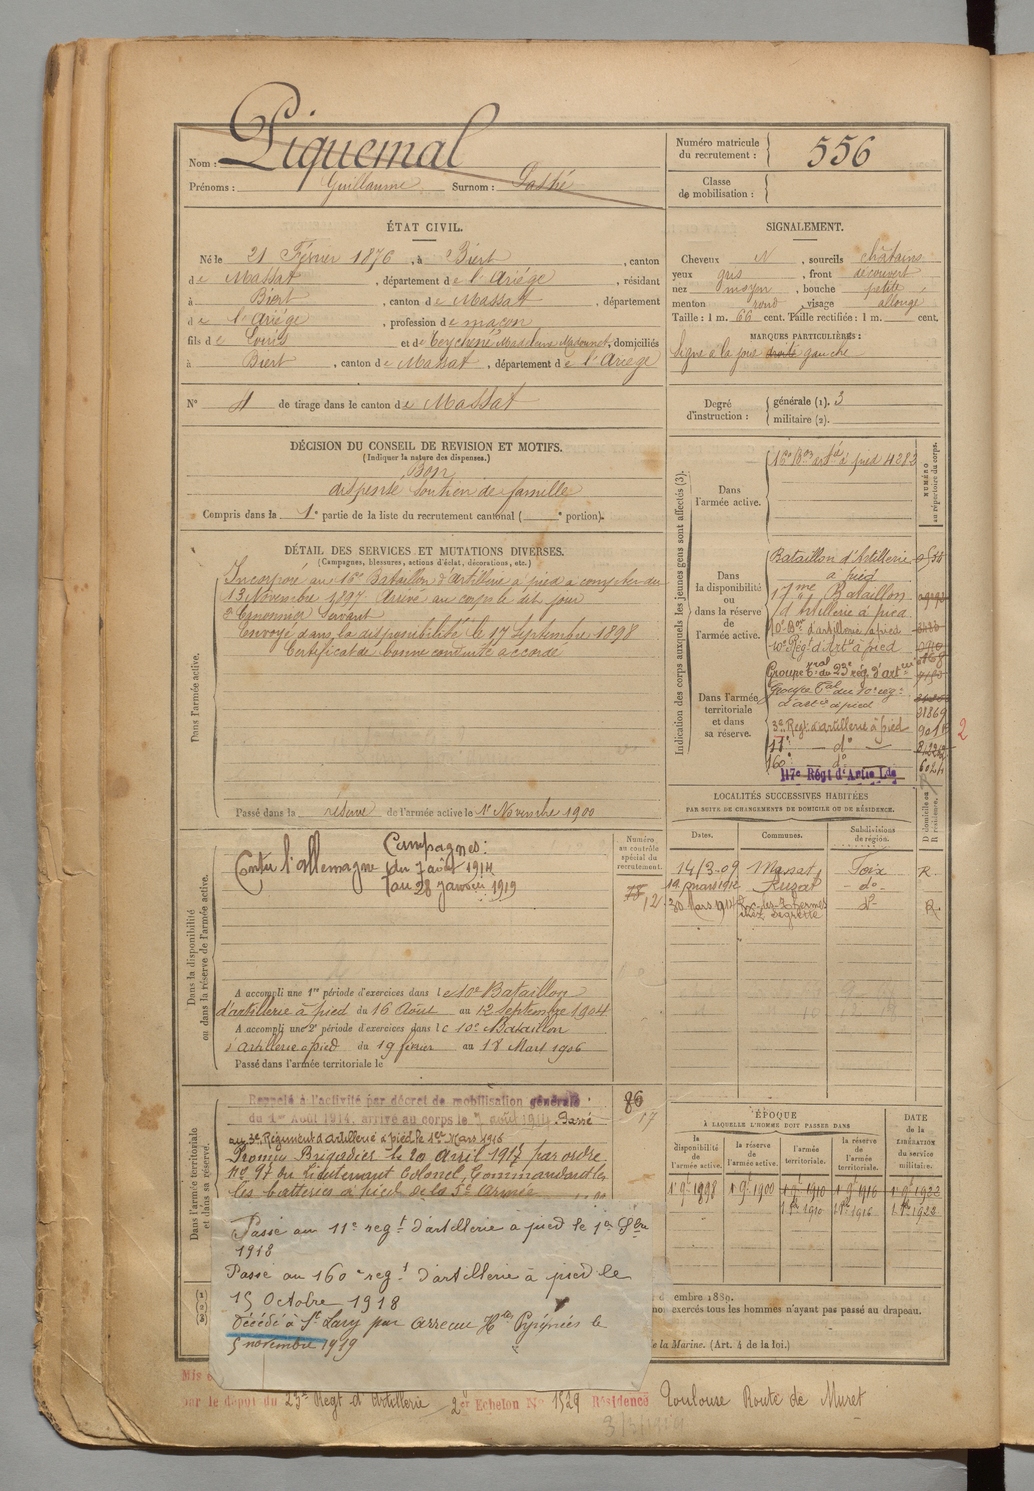 Nom : Piquemal
Prénoms : Guillaume Surnom :
Numéro matricule du recrutement : 556
Classe de mobilisation :
ÉTAT CIVIL.
Né le 21 Février 1876, à Biert, canton
de Massat, département de l'Ariége, résidant
à Biert, canton de Massat, département
de l'Ariége, profession de maçon
fils de Louis et de Teychené Madelaine, domiciliés
à Biert, canton de Massat, département de l'Ariége
N° 4 de tirage dans le canton de Massat
SIGNALEMENT.
Cheveux N, sourcils châtains
yeux gris, front découvert
nez moyen, bouche petite
menton rond, visage allongé
Taille : 1 m. 66 cent. Taille rectifiée : 1 m. cent.
MARQUES PARTICULIÈRES :
Signe à la joue droite gauche
Degré d'instruction : générale (1). 3
militaire (2).
DÉCISION DU CONSEIL DE REVISION ET MOTIFS.
(Indiquer la nature des dispenses.)
Bon
dispensé soutien de famille
Compris dans la 1e partie de la liste du recrutement cantonal ( e portion).
DÉTAIL DES SERVICES ET MUTATIONS DIVERSES.
(Campagnes, blessures, actions d'éclat, décorations, etc.)
Dans l'armée active.
Incorporé au 16me Bataillon d'artillerie à pied à compter du
13 Novembre 1897. Arrivé au corps le dit jour
2e Canonnier Servant
Envoyé dans la disponibilité le 17 Septembre 1898
Certificat de bonne conduite accordé
Passé dans la réserve de l'armée active le 1er Novembre 1900
Indication des corps auxquels les jeunes gens sont affectés (3).
NUMÉRO au répertoire du corps.
Dans l'armée active.
16e Bon artie à pied 4283
Dans la disponibilité ou dans la réserve de l'armée active.
Bataillon d'Artillerie
à pied
17me Bataillon
d'Artillerie à pied
10e Bon d'artillerie à pied
10e Régt d'Artie à pied
Dans l'armée territoriale et dans sa réserve.
Groupe Tral du 23e rég. d'artie
Groupe Tal du 10e rég.
d'artie à pied 31869
3e Regt d'artillerie à pied 901
11e - do -
160e do 6024
117e Régt d'Artie Lde
2
LOCALITÉS SUCCESSIVES HABITÉES
PAR SUITE DE CHANGEMENTS DE DOMICILE OU DE RÉSIDENCE.
Dates. Communes. Subdivisions de région. D domicile ou R résidence.
14/3-09 Massat Foix R.
19 mars 1912 - do -
30 Mars 1914 do R.
Dans la disponibilité ou dans la réserve de l'armée active.
Numéro au contrôle spécial du recrutement.
Campagnes :
Contre l'allemagne du 7 août 1914
au 28 janvier 1919
A accompli une 1re période d'exercices dans le 10e Bataillon
d'artillerie à pied du 16 Août au 12 Septembre 1904
A accompli une 2e période d'exercices dans le 10e Bataillon
d'artillerie à pied du 19 février au 18 Mars 1906
Passé dans l'armée territoriale le
Dans l'armée territoriale et dans sa réserve.
Rappelé à l'activité par décret de mobilisation générale
du 1er Août 1914, arrivé au corps le 7 août 1914. Passé
au 3e Régiment d'artillerie à pied le 1er Mars 1916
Promu Brigadier le 20 avril 1917 par ordre
No 97 du Lieutenant Colonel Commandant les
les batteries à pied de la 5e Armée
86
17
Passé au 11e regt d'artillerie à pied le 1er 8bre
1918
Passé au 160e regt d'artillerie à pied le
15 Octobre 1918
Décédé à St Lary par Arreau Htes Pyrénées le
5 novembre 1919
ÉPOQUE
À LAQUELLE L'HOMME DOIT PASSER DANS
la disponibilité de l'armée active. la réserve de l'armée active. l'armée territoriale. la réserve de l'armée territoriale.
DATE de la LIBÉRATION du service militaire.
1 9e 1898 1 9e 1900 1 9e 1910 1 9e 1916 1 9e 1922
1 8re 1910 1 8re 1916 1 8re 1922
embre 1889.
non exercés tous les hommes n'ayant pas passé au drapeau.
de la Marine. (Art. 4 de la loi.)
Mis
par le dépôt du 23e Regt d'Artillerie 2er Echelon No 1529 Résidence Toulouse Route de Muret